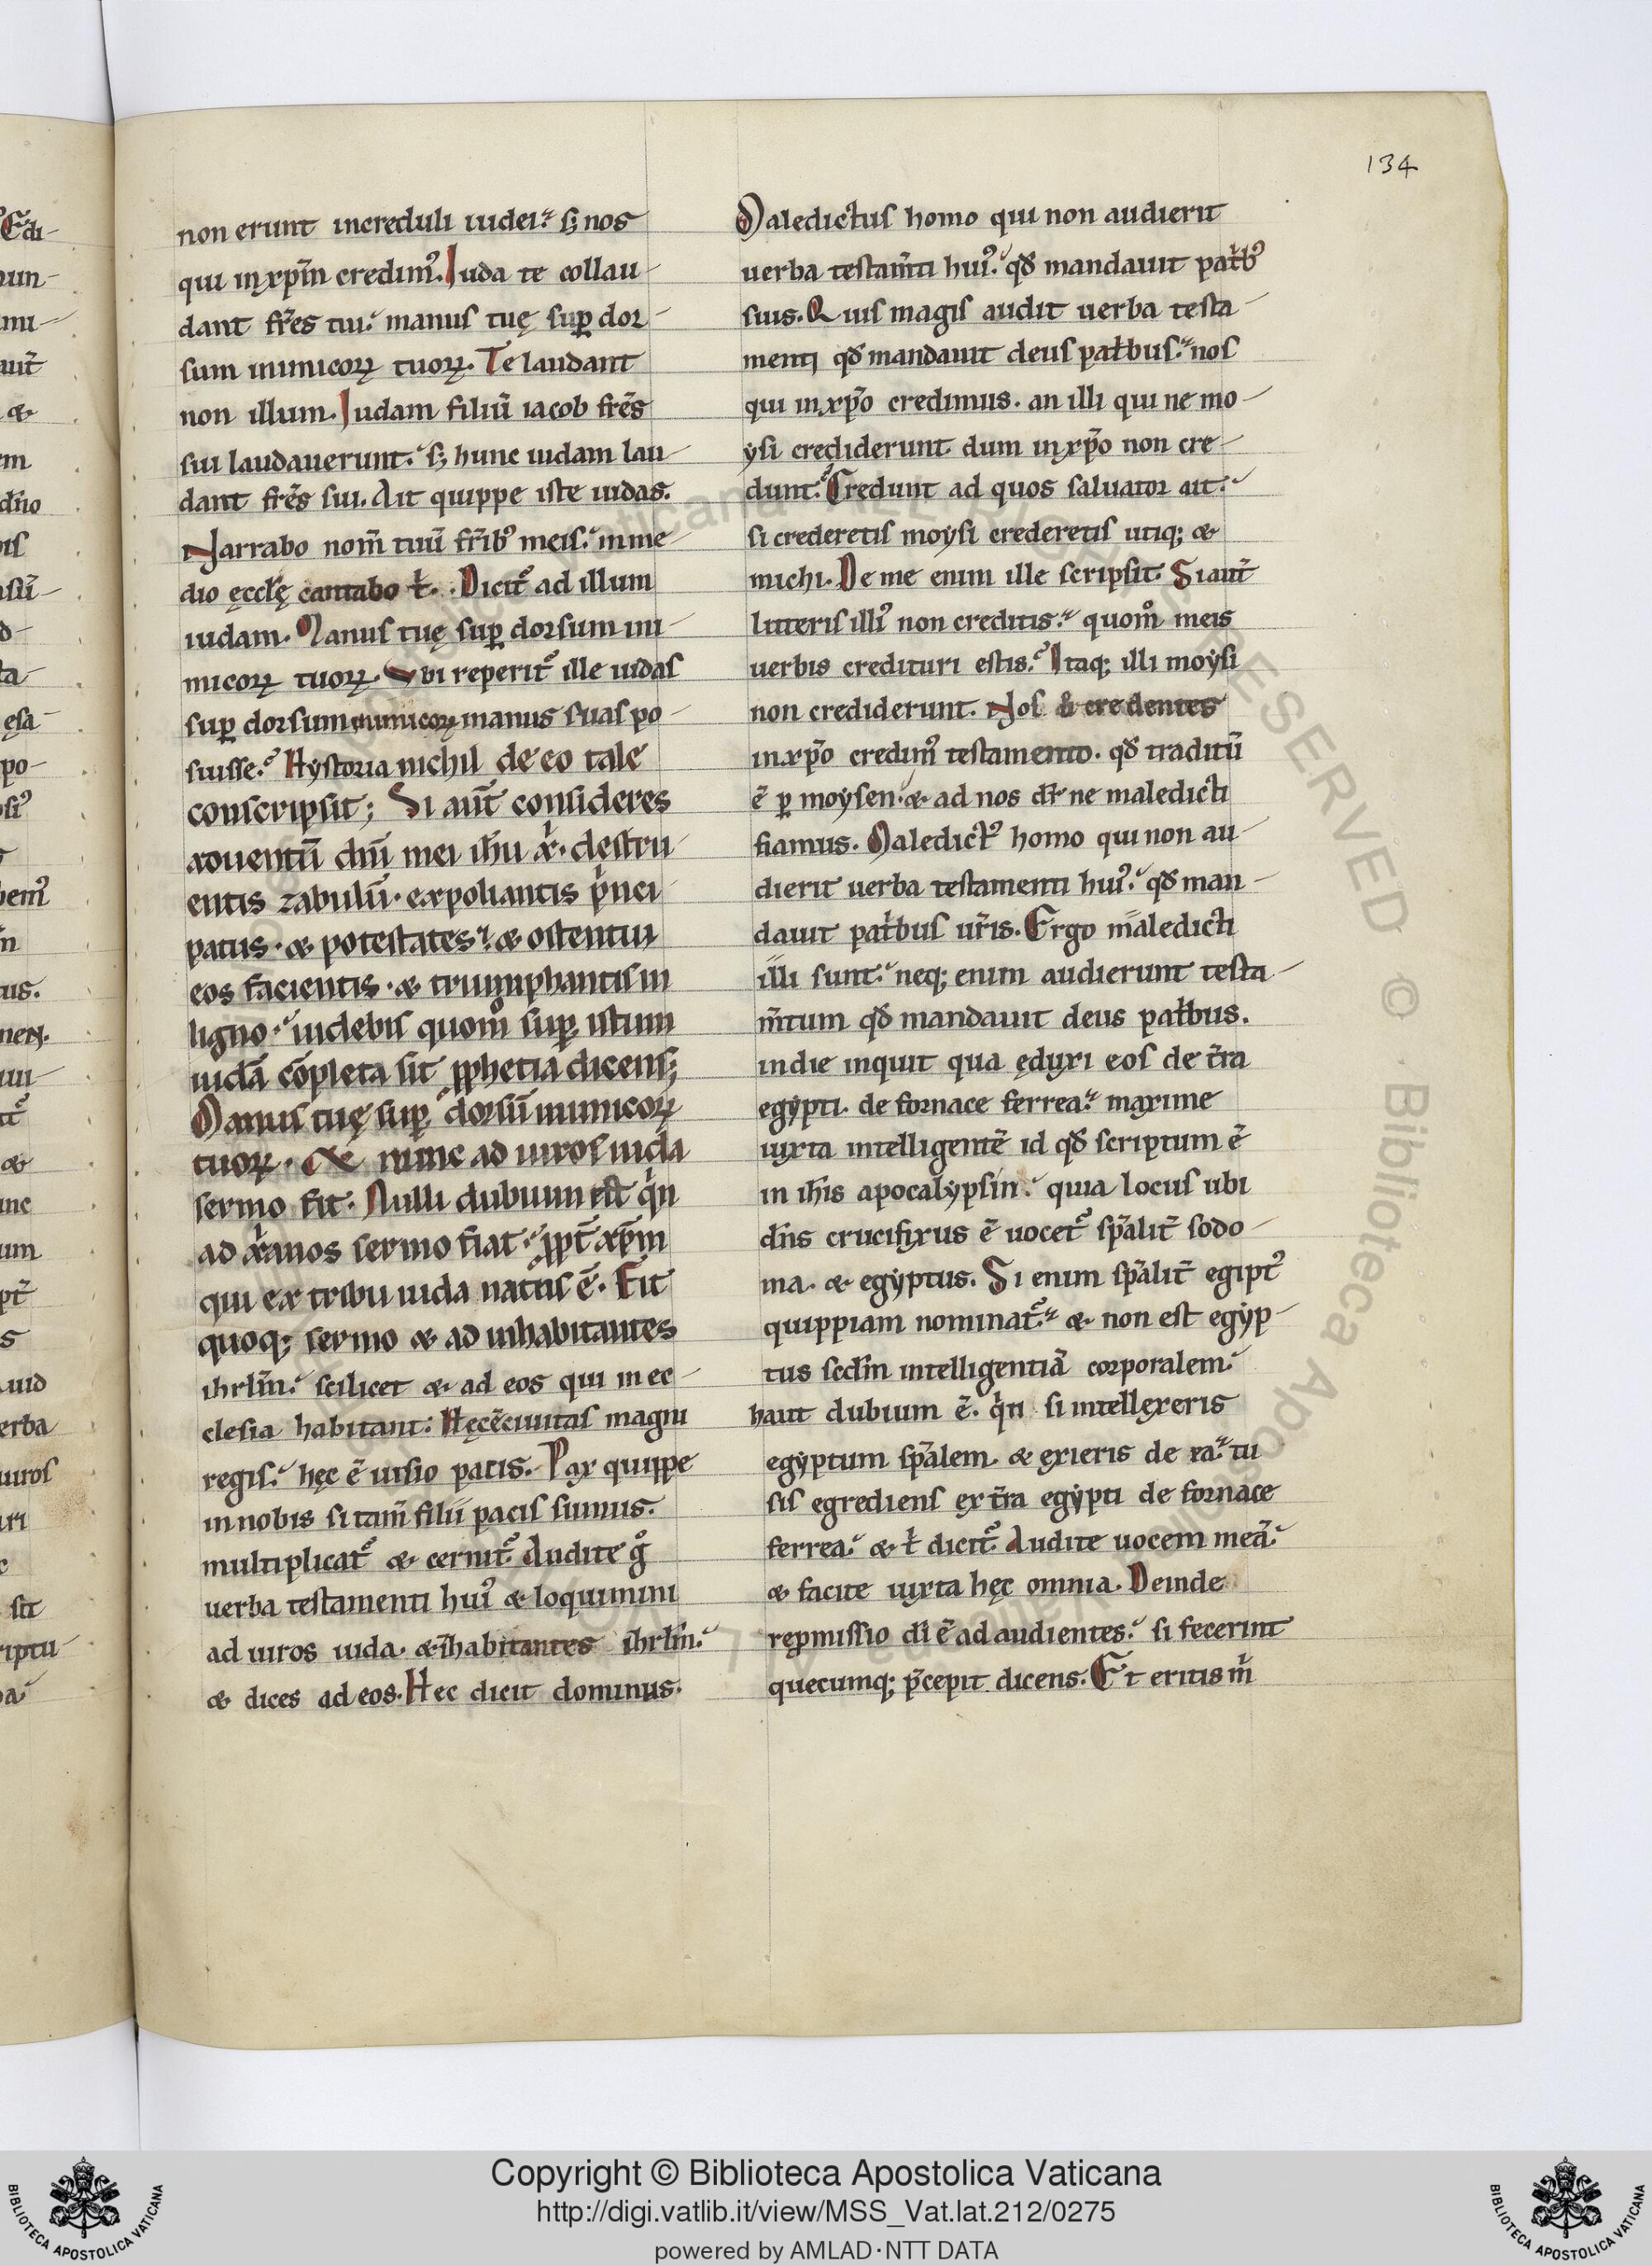 134
non erunt increduli iudei. sꝫ nos
qui in xp̄m credimꝰ. Iuda te collau-
dant fr̄es tui. manus tuę suꝑ dor-
sum inimicoꝝ tuoꝝ. Te laudant
non illum. Iudam filiū iacob fr̄es
sui laudauerunt. sꝫ hunc iudam lau-
dant fr̄es sui. Ait quippe iste iudas.
Narrabo nom̄ tuū fr̄ibꝰ meis. in me-
dio ęccłę cantabo t̵. Dicit᷑ ad illum
iudam. Manus tuę suꝑ dorsum ini-
micoꝝ tuoꝝ. Vbi reperit᷑ ille iudas
suꝑ dorsum inimicoꝝ manus suas po-
suisse. Hystoria nichil de eo tale
conscripsit; Si aut̄ consideres
aduentū dn̄i mei ih̄u x̓. destru-
entis zabulū. expoliantis p̓nci-
patus. & potestates. & ostentui
eos facientis. & triumphantis in
ligno. uidebis quom̊ suꝑ istum
iudā cōpleta sit ꝓphetia dicens;
Manus tuę suꝑ dorsū inimicoꝝ
tuoꝝ. & nunc ad uiros iuda
sermo fit. Nulli dubium est q̓n
ad x̓anos sermo fiat. ꝓpt̄ xp̄m
qui ex tribu iuda natus ē. Fit
quoqꝫ sermo & ad inhabitantes
ihrłm̄. scilicet & ad eos qui in ec-
clesia habitant. Hęc ē ciuitas magni
regis. hęc ē uisio pacis. Pax quippe
in nobis si tam̄ filii pacis sumus.
multiplicat᷑ & cernit᷑. Audite g̊
uerba testamenti huiꝰ & loquimini
ad uiros iuda. & īhabitantes ihrłm̄.
& dices ad eos. Hec dicit dominus.
Maledictus homo qui non audierit
uerba testam̄ti huiꝰ. qđ mandauit pat̓bꝰ
suis. Quis magis audit uerba testa-
menti qđ mandauit deus pat̓bus. nos
qui in xp̄o credimus. an illi qui ne mo-
ysi crediderunt dum in xp̄o non cre-
dunt. Credunt ad quos saluator ait.
si crederetis moysi crederetis utiqꝫ &
michi. De me enim ille scripsit. Si aut̄
litteris illiꝰ non creditis. quom̊ meis
uerbis credituri estis. Itaqꝫ illi moysi
non crediderunt. Nos credentes
in xp̄o credimꝰ testamento. qđ traditū
ē ꝑ moysen. & ad nos dr̄ ne maledicti
fiamus. Maledictꝰ homo qui non au-
dierit uerba testamenti huiꝰ. qđ man-
dauit pat̓bus ur̄is. Ergo maledicti
illi sunt. neqꝫ enim audierunt testa-
m̄tum qđ mandauit deus pat̓bus.
in die inquit qua ęduxi eos de t̄ra
egypti. de fornace ferrea. maxime
iuxta intelligentē id qđ scriptum ē
in ih̄is apocalypsin. quia locus ubi
dn̄s crucifixus ē uocet᷑ sp̄alit̄ sodo-
ma. & egyptus. Si enim sp̄alit̄ egiptꝰ
quippiam nominat᷑. & non est egyp-
tus scd̄m intelligentiā corporalem.
haut dubium ē. q̓n si intellexeris
egyptum sp̄alem. & exieris de ea. tu
sis egrediens ex t̄ra egypti de fornace
ferrea. & t̵ dicit᷑. Audite uocem meā.
& facite iuxta hęc omnia. Deinde
reꝓmissio di̅ ē ad audientes. si fecerint
quecumqꝫ p̄cepit dicens. Et eritis m̓
Copyright © Biblioteca Apostolica Vaticana
http://digi.vatlib.it/view/MSS_Vat.lat.212/0275
powered by AMLAD·NTT DATA
BIBLIOTECA APOSTOLICA VATICANA
BIBLIOTECA APOSTOLICA VATICANA